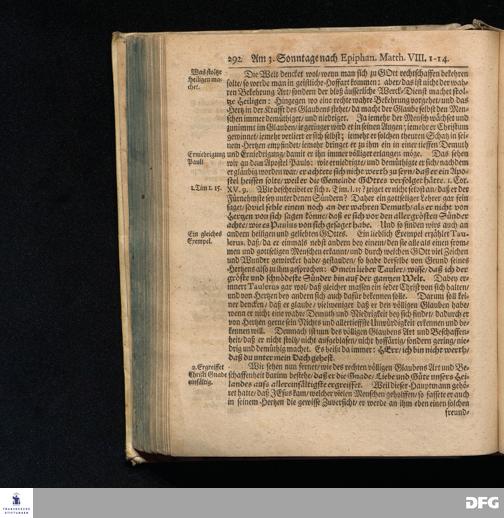 292 Am 3. Sonntage nach Epiphan. Matth. VIII. 1-14.
Was stoltze
Heiligen ma-
chet.
Die Welt dencket wol/ wenn man sich zu GOtt rechtschaffen bekehren
solte/ so werde man in geistliche-Hoffart kommen: aber/ das ist nicht der wah-
ren Bekehrung Art/ sondern der bloß äusserliche Werck-Dienst machet stol-
tze Heiligen: Hingegen wo eine rechte wahre Bekehrung vorgehet/ und das
Hertz in der Krafft des Glaubens stehet/ da macht der Glaube selbst den Men-
schen immer demüthiger/ und niedriger. Ja iemehr der Mensch wächset und
zunimmt im Glauben/ ie geringer wird er in seinen Augen; iemehr er Christum
gewinnet/ iemehr verliert er sich selbst; iemehr er solchen theuren Schatz in sei-
nem Hertzen empfindet/ iemehr dringet er zu ihm ein in einer tieffen Demuth
Erniedrigung
Pauli
und Erniedrigung/ damit er ihn immer völliger erlangen möge. Das sehen
wir an dem Apostel Paulo: wie erniedrigte/ und demüthigte er sich/ nach dem
er gläubig worden war/ er achtete sich nicht werth zu seyn/ daß er ein Apo-
stel heissen solte/ weil er die Gemeinde GOttes verfolget hätte. 1. Cor.
1. Tim 1. 15.
XV. 9. Wie beschreibet er sich 1. Tim. I. 15? zeiget er nicht selbst an/ daß er der
Fürnehmste sey unter denen Sündern? Daher ein gottseliger Lehrer gar fein
saget/ so viel fehle einem noch an der wahren Demuth/ als er nicht von
Hertzen von sich sagen könne/ daß er sich vor den allergrösten Sünder
achte/ wie es Paulus von sich gesaget habe. Und so finden wirs auch an
Ein gleiches
Exempel.
andern heiligen und geliebten GOttes. Ein lieblich Exempel erzählet Tau-
lerus, daß/ da er einmals nebst andern bey einem/ den sie alle als einen from-
men und gottseligen Menschen erkannt/ und durch welchen GOtt viel Zeichen
und Wunder gewircket habe/ gestanden/ so habe derselbe von Grund seines
Hertzens also zu ihm gesprochen: O mein lieber Tauler/ wisse/ daß ich der
gröste und schnödeste Sünder bin auf der gantzen Welt. Dabey er-
innert Taulerus gar wol/ daß gleicher massen ein ieder Christ von sich halten/
und von Hertzen bey andern sich auch dafür bekennen solle. Darum soll kei-
ner dencken/ daß er glaube/ vielweniger daß er den völligen Glauben habe/
wenn er nicht eine wahre Demuth und Niedrigkeit bey sich findet/ dadurch er
von Hertzen gerne sein Nichts und allertieffste Unwürdigkeit erkennen und be-
kennen will. Demnach ist nun des völligen Glaubens Art und Beschaffen-
heit/ daß er nicht stoltz/ nicht aufgeblasen/ nicht hoffärtig/ sondern gering/ nie-
drig und demüthig machet. Es heist da immer: HErr/ ich bin nicht werth/
daß du unter mein Dach gehest.
2. Ergreiffet
Christi Gnade
einfältig.
Wir sehen nun ferner/ wie des rechten völligen Glaubens Art und Be-
schaffenheit darinn bestehe/ daß er die Gnade/ Liebe und Güte unsers Hei-
landes aufs allereinfältigste ergreiffet. Weil dieser Hauptmann gehö-
ret hatte/ daß JEsus kam/ welcher vielen Menschen geholffen/ so fassete er auch
in seinem Hertzen die gewisse Zuversicht/ er werde an ihm eben einen solchen
freund-
FRANCKESCHE
STIFTUNGEN
DFG